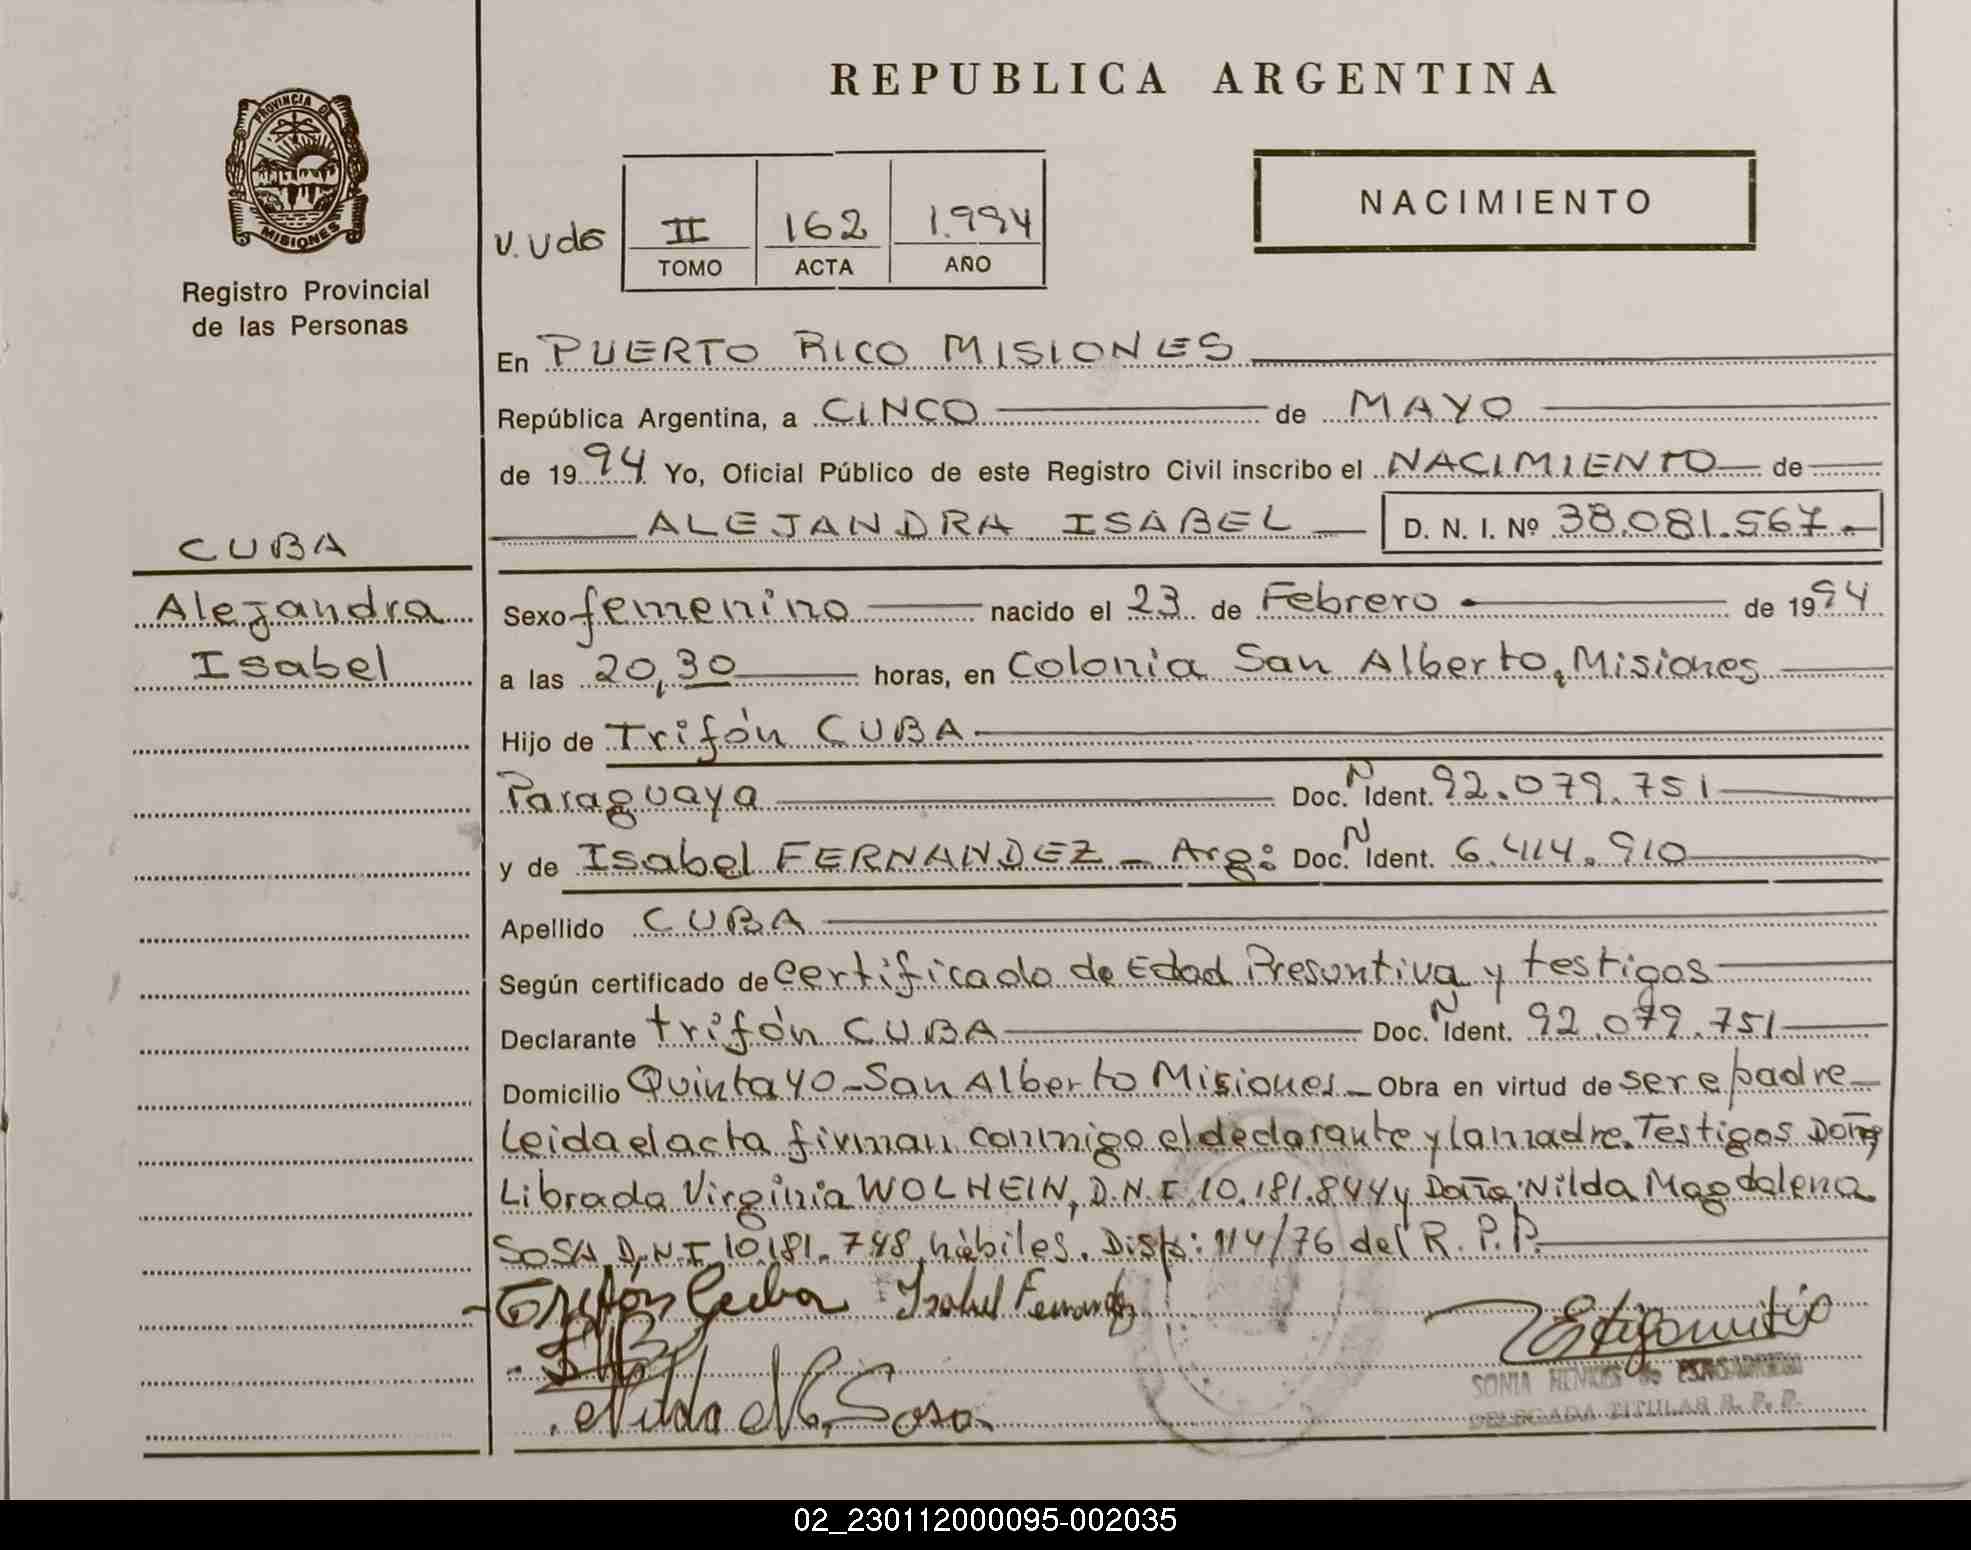 REPUBLICA ARGENTINA
PROVINCIA DE
MISIONES
Registro Provincial
de las Personas
NACIMIENTO
II 162 1.994
TOMO ACTA AÑO
En PUERTO RICO MISIONES
República Argentina, a CINCO de MAYO
de 1994 Yo, Oficial Público de este Registro Civil inscribo el NACIMIENTO de
ALEJANDRA ISABEL D. N. I. Nº 38.081.567.-
CUBA
Alejandra
Isabel
Sexo femenino nacido el 23 de Febrero de 1994
a las 20,30 horas, en Colonia San Alberto, Misiones
Hijo de Trifón CUBA
Paraguaya Doc. N Ident. 92.079.751
y de Isabel FERNANDEZ - Arg: Doc. N Ident. 6.414.910
Apellido CUBA
Según certificado de certificado de Edad Presuntiva y testigos
Declarante trifón CUBA Doc. N Ident. 92.079.751
Domicilio Quinta 40 - San Alberto Misiones - Obra en virtud de ser e padre
Leida el acta firman conmigo el declarante y la madre. Testigos Doña
Librada Virginia WOLHEIN, D.N.I 10.181.844 y Doña Nilda Magdalena
SOSA D.N.I 10.181.748, hábiles. Disp: 114/76 del R.P.P.
Trifón Cuba Isabel Fernandez
Nilda M. Sosa
SONIA
DELEGADA TITULAR R. P. P.
02_230112000095-002035